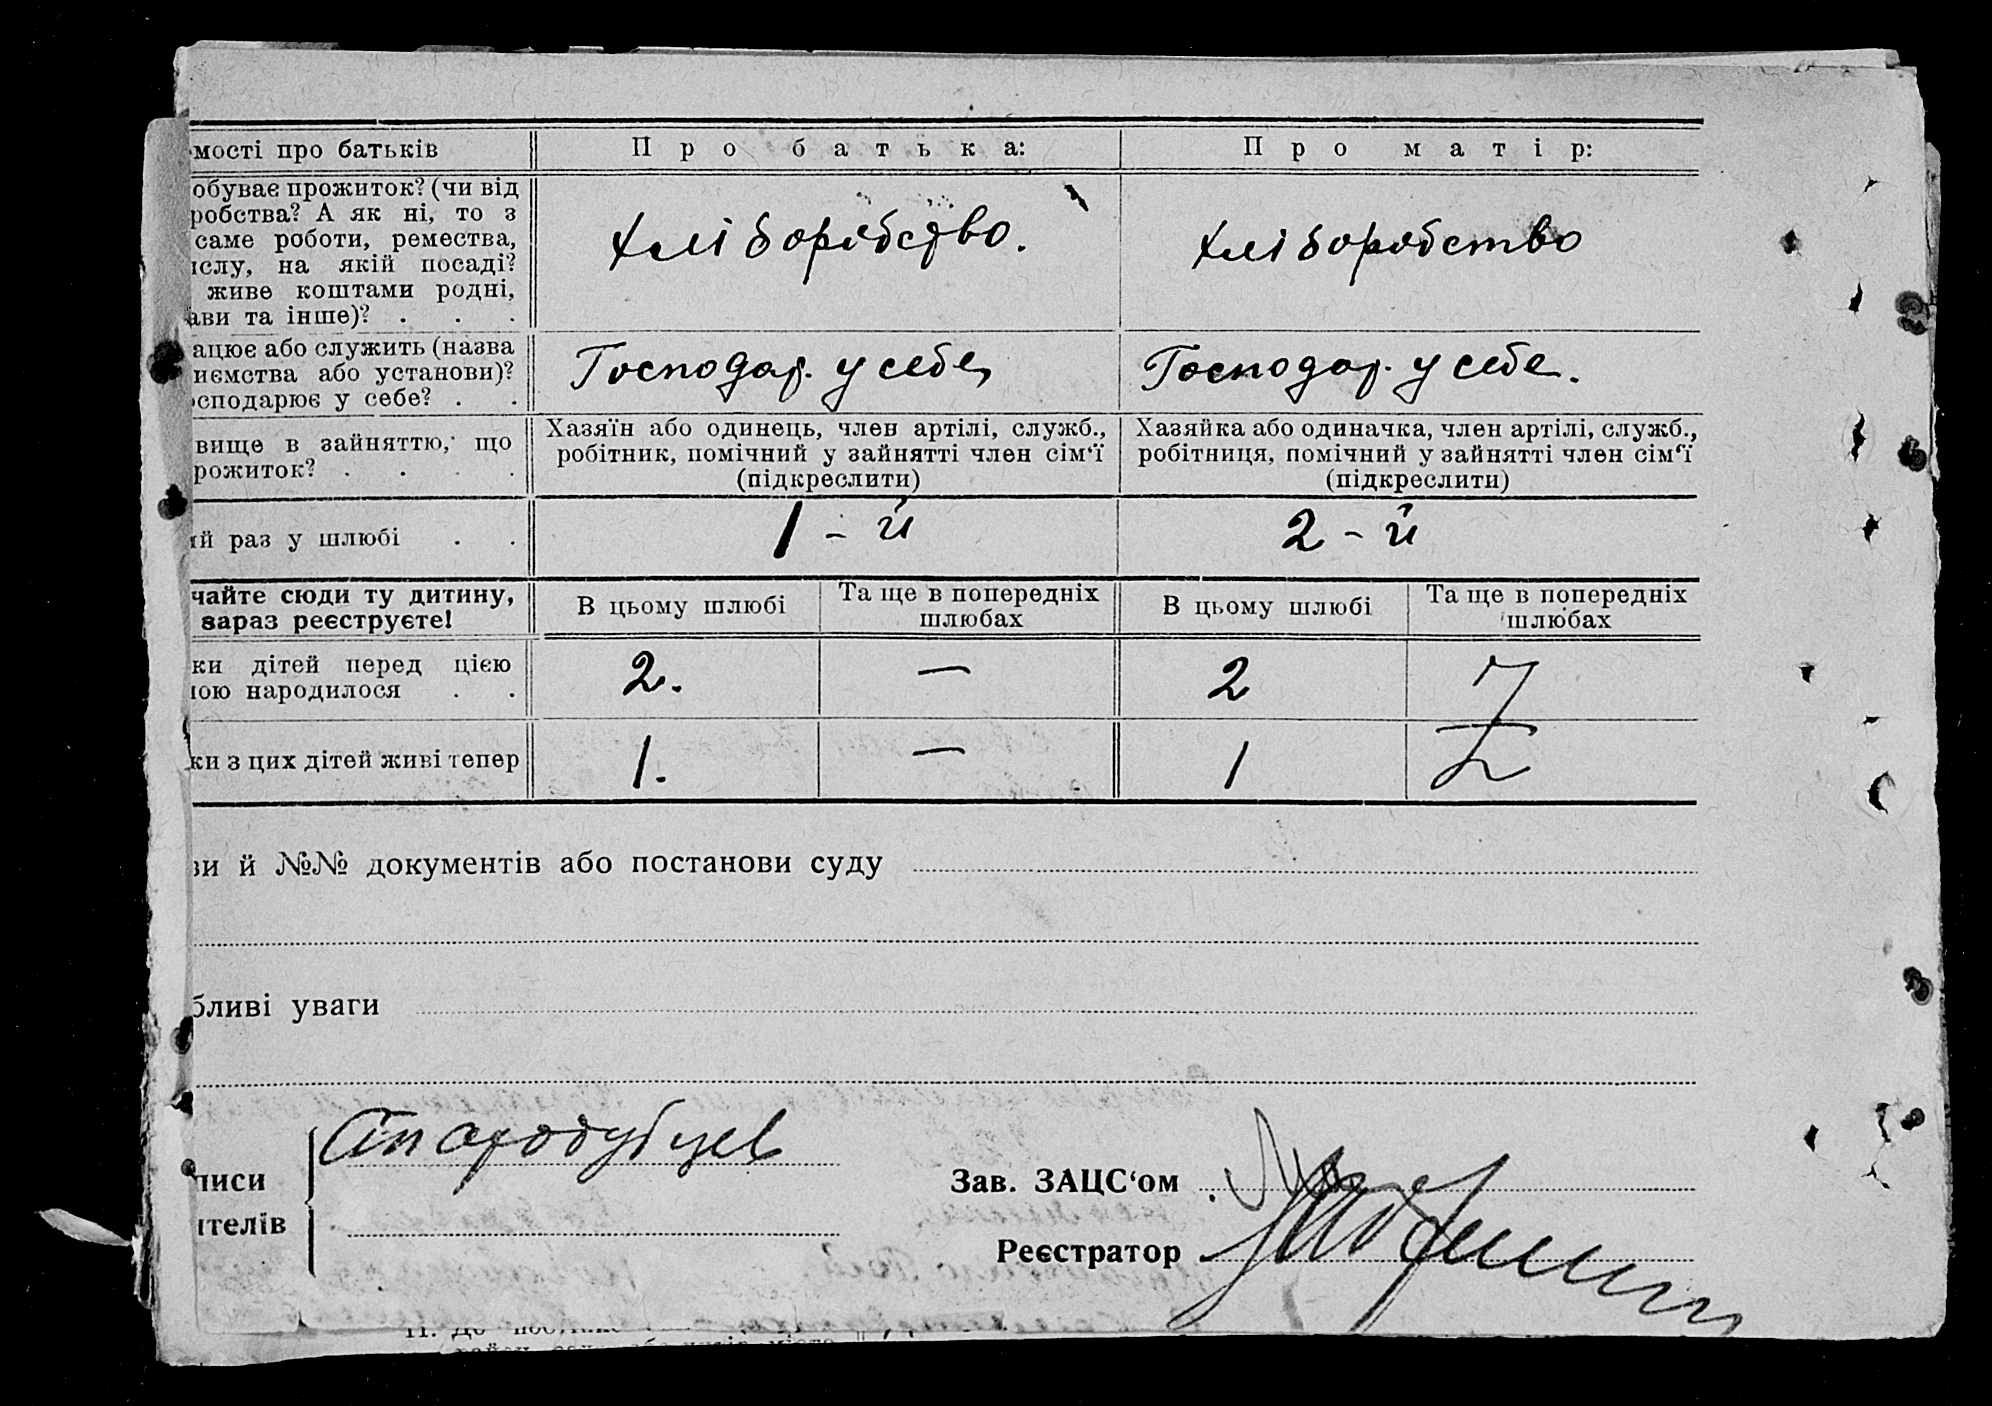 мості про батьків
Про батька:
Про матір:
обуває прожиток? (чи від
робства? А як ні, то з
саме роботи, ремества,
ислу, на якій посаді?
живе коштами родні,
ави та інше)? . . .
хліборобство.
хліборобство
ацює або служить (назва
иємства або установи)?
сподарює у себе? . .
Господар. у себе,
Господар. у себе.
вище в зайняттю, що
рожиток? . . . .
Хазяїн або одинець, член артілі, служб.,
робітник, помічний у зайнятті член сім‘ї
(підкреслити)
Хазяйка або одиначка, член артілі, служб.,
робітниця, помічний у зайнятті член сім‘ї
(підкреслити)
ий раз у шлюбі . .
1 - й
2 - й
чайте сюди ту дитину,
зараз реєструєте!
В цьому шлюбі
Та ще в попередніх
шлюбах
В цьому шлюбі
Та ще в попередніх
шлюбах
ки дітей перед цією
ною народилося . .
2.
—
2
7
ки з цих дітей живі тепер
1.
—
1
зи й №№ документів або постанови суду
бливі уваги
Стародубцев
писи
ителів
Зав. ЗАЦС‘ом
Реєстратор